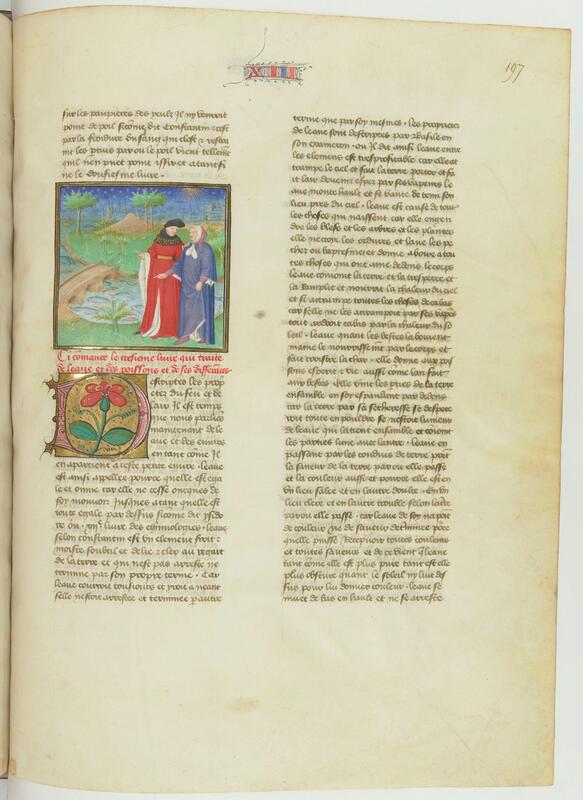 XIII
197
sur les paupieres des yeulx Il ny vendroit
point de poil sicome dit Constantin
par la froidure du sang qui clost et restraint
les ptuis par ou le poil vient tellement
quil nen puet point issir et atant fi
ne le dousiesme livre
Ci comance le tresieme livre qui traite
de leaue et des poissons et de ses differences
Descriptes les prop
etez du feu et de
lair Il est temps
que nous parlions
maintenant de le
aue et des euvres
en tant come Il
en apartient a ceste petite euvre leaue
est ainsi appellee pource quelle est ega
le et onnie car elle ne cesse oncques de
soy mouvoir Jusques atant quelle est
toute egale par dessus sicome dit ysido
re ou livre des ethimologies leaue
selon constantin est un element froit
moiste soubtil et delie cler au regart
de la terre et qui nest pas arreste ne
termine par son propre terme Car
leaue courroit tousiours et yroit avant
selle nestoit arrestee et terminee par autre
terme que par soy mesmes les proprietez
de leaue sont descriptes par Basile en
son exameron ou Il dit ainsi leaue entre
les elemens est tresproufitable car elle at
trempe le ciel et fait la terre porter et fa
it lair devenir espes par ses vapeurs le
aue monte hault et se vante de tenir son
lieu pres du ciel leaue est cause de toutes
les choses qui naissent car elle engen
dre les blefs et les arbres et les plantes
elle nettoye les ordures et lave les pe
chez ou baptesme et donne a boire a tou
tes choses qui ont ame dedens le corps
leaue
la et nourrit la chaleur du ciel
et si attrempe toutes les choses de cabas
car selle ne les attrempoit par ses vapeurs
tout ardroit cabas par la chaleur du so
leil leaue quant les bestes la boivent
le nourrissement par le corps et
fait croistre la char elle donne aux pois
sons esperit et vie aussi come lair fait
aux bestes elle Joint les pties de la terre
ensemble en soy espandant par dedens
car la terre par sa secheresse se despece
roit toute en pouldre se nestoit lumeur
de leaue qui la tient ensemble et conioint
les parties lune avec lautre leaue en
passant par les conduis de terre prent
la saveur de la terre par ou elle passe
et la couleur aussi et pource elle est en
un lieu salee et en lautre doulce En un
lieu clere et en lautre trouble selon la terre
par ou elle passe car leaue de soy na point
de couleur ne de saveur determinee pource
quelle puisse Recepvoir toutes couleurs
et toutes saveurs et de ce vient que leaue
tant come elle est plus pure tant est elle
plus obscure quant le soleil ny luist des
sus pour lui donner couleur leaue se
muet de bas en hault et ne se arreste